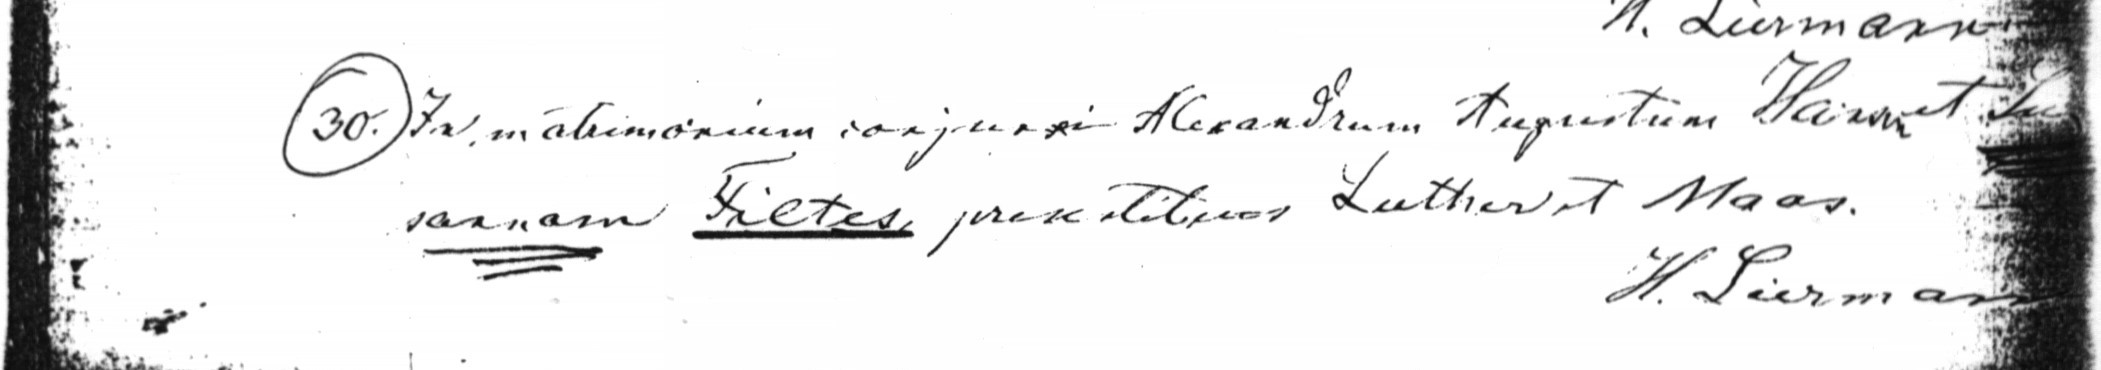 H. Liermann
30. In matrimonium conjunxi Alexandrum Augustum et Su
sannam Filtes, testibus Luther et Maas.
H. Liermann